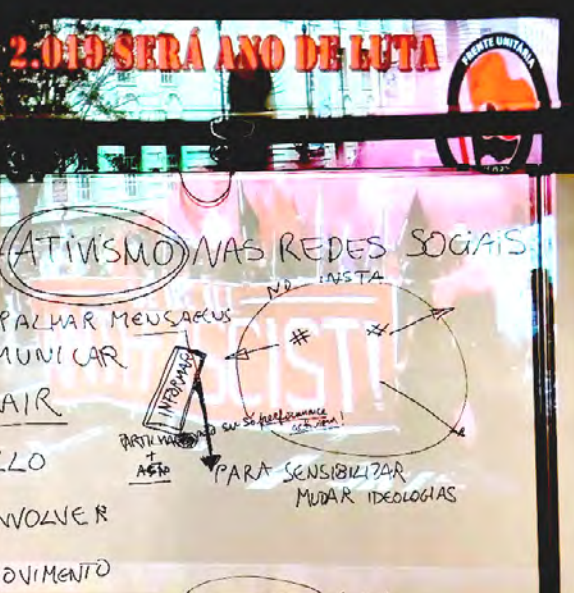 2.019 SERÁ ANO DE LUTA
FRENTE UNITÁRIA
ATIVISMO NAS REDES SOCIAIS
NO INSTA
PALHAR MENSAGENS
MUNICAR
# #
INFORMAR
AIR
CIST!
PARTILHAR
só performance
activism!
+
AÇÃO
LLO
PARA SENSIBILIZAR
MUDAR IDEOLOGIAS
NVOLVER
OVIMENTO